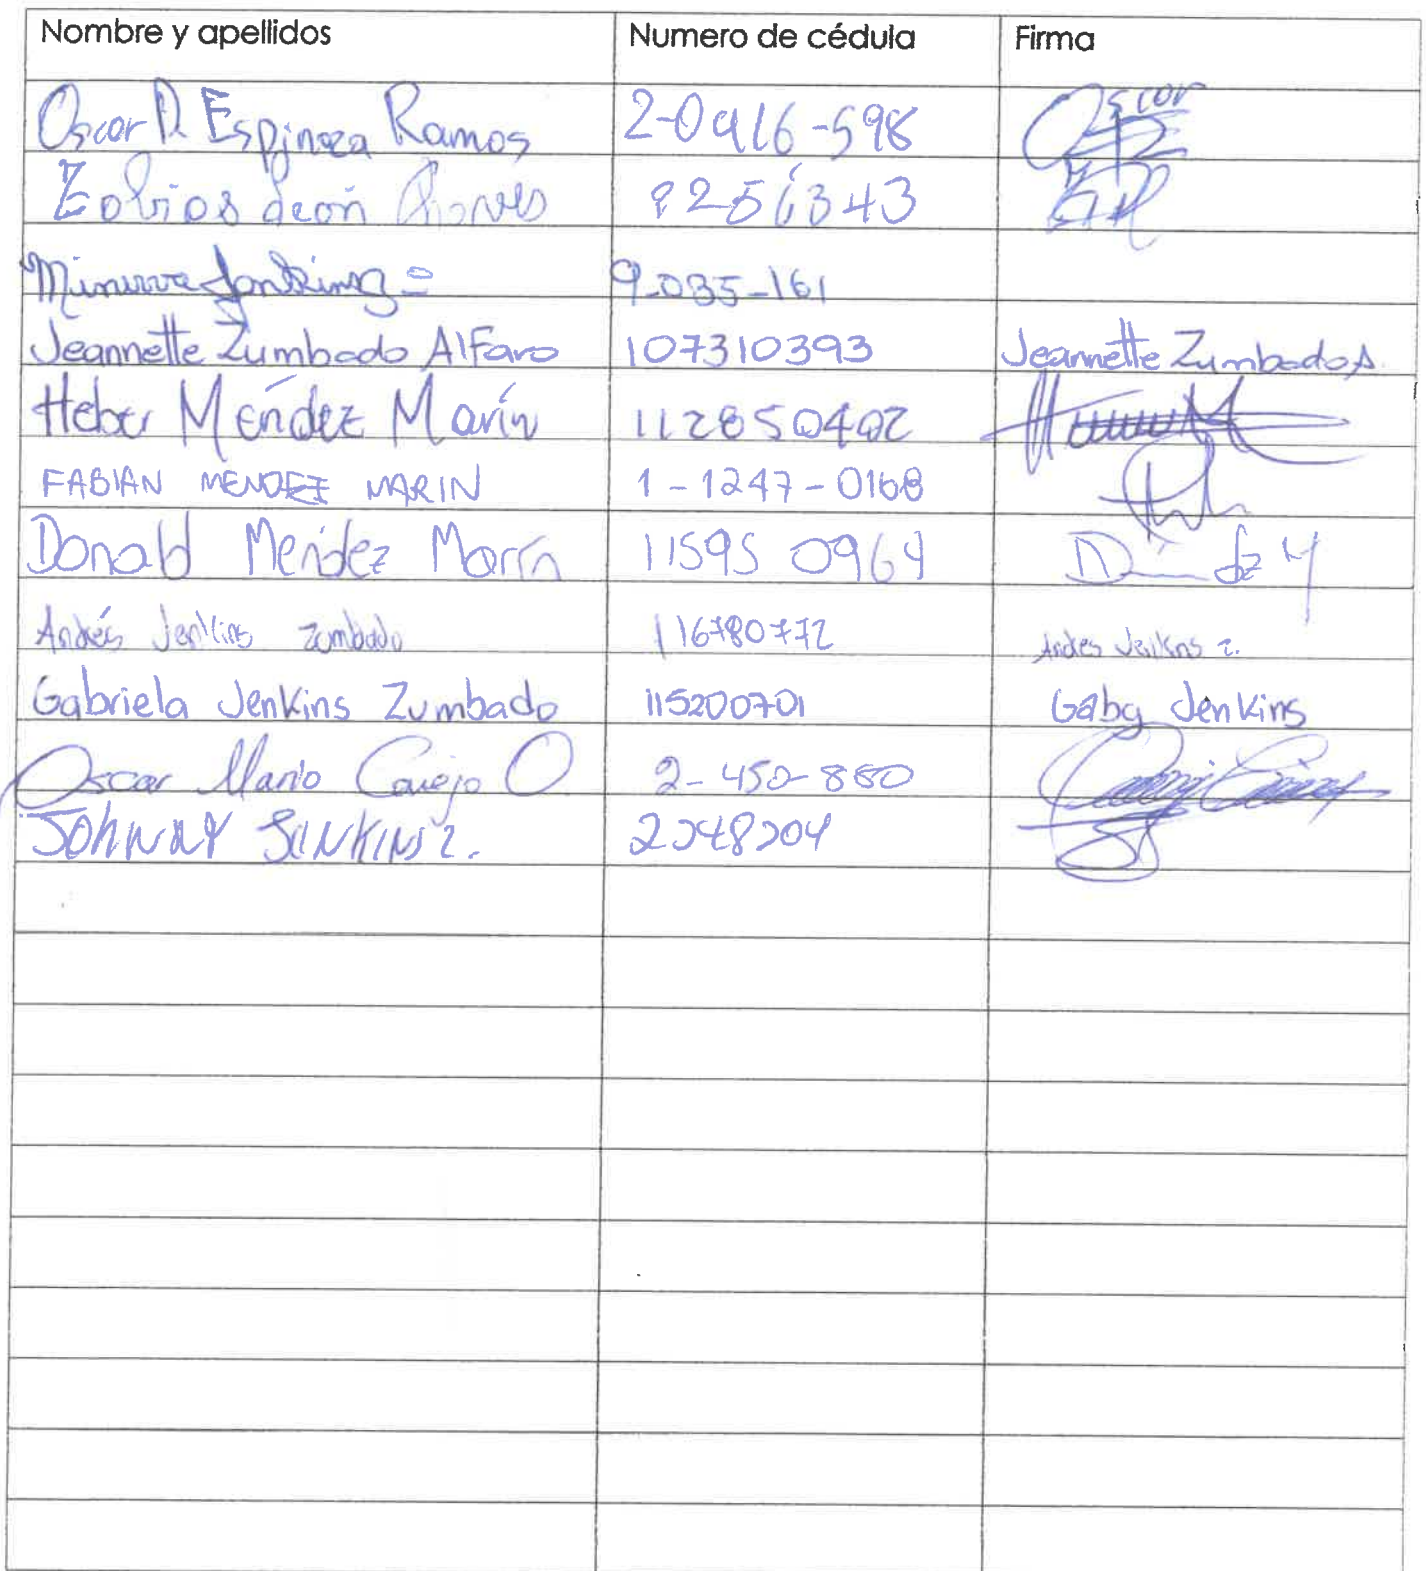 Nombre y apellidos Numero de cédula Firma
Oscar D. Espinoza Ramos 2-0416-598 Oscar
León 2256343
Minerva Jenkins 9-035-161
Jeannette Zumbado Alfaro 107310393 Jeannette Zumbado A.
Heber Méndez Marín 112850402
FABIAN MENDEZ MARIN 1-1247-0168
Donald Méndez Marín 11595 0964
Andrés Jenkins Zumbado 116780772 Andrés Jenkins Z.
Gabriela Jenkins Zumbado 115200701 Gaby Jenkins
Oscar Mario O 2-450-880
JOHNNY JENKINS 2348204